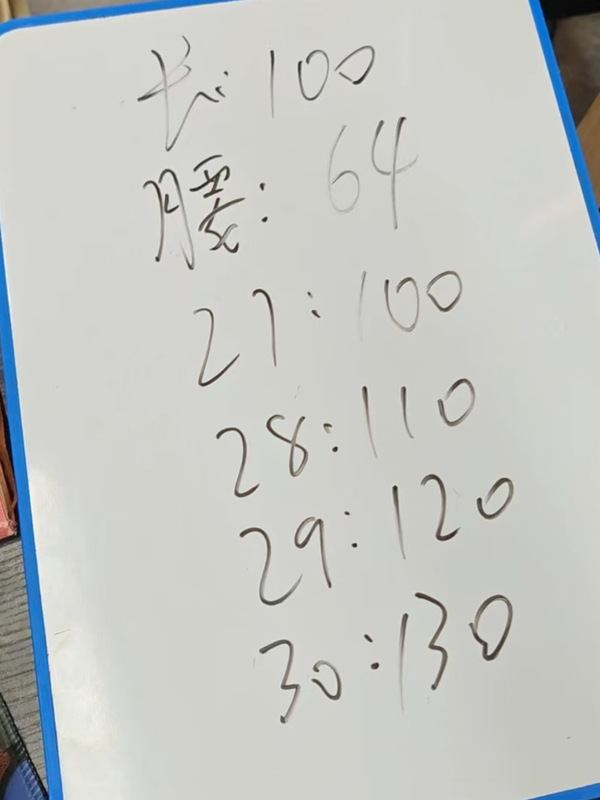 长:100
腰:64
27:100
28:110
29:120
30:130